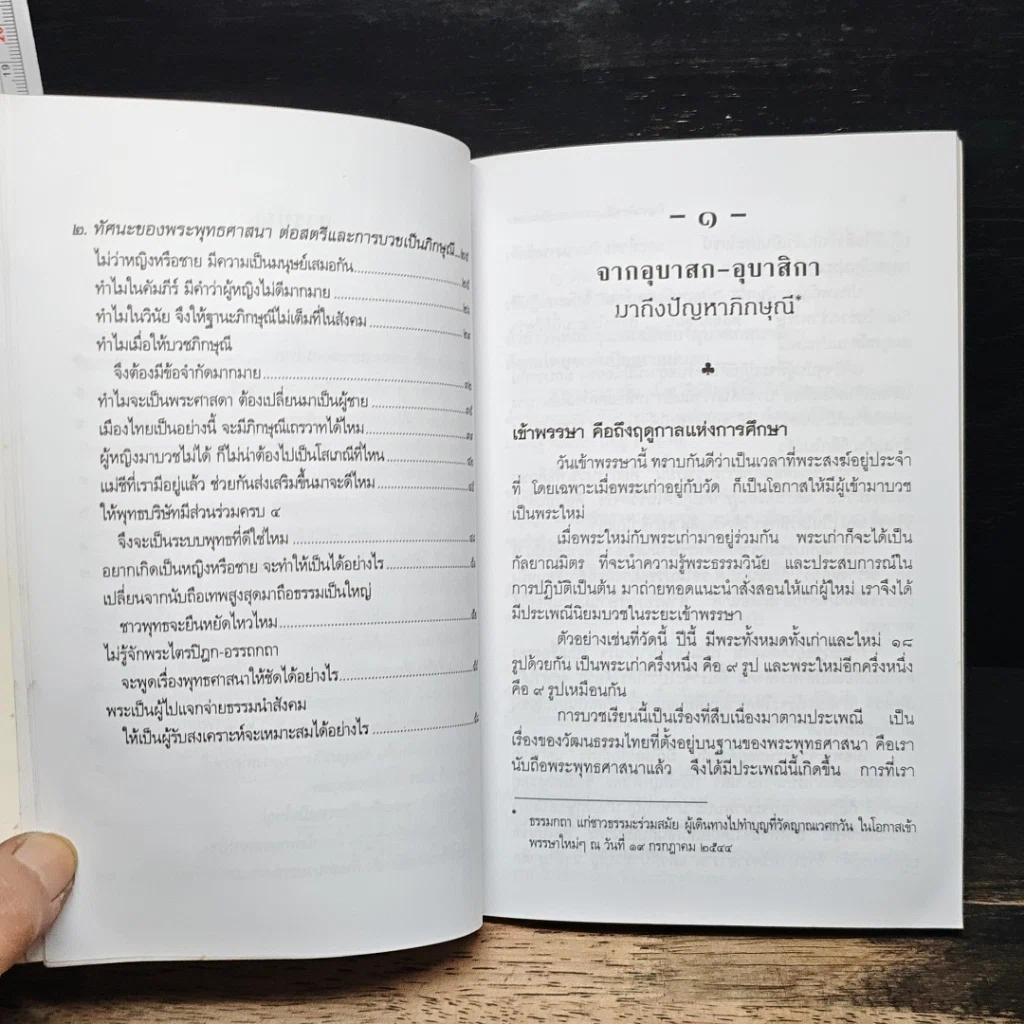 ๒. ทัศนะของพระพุทธศาสนา ต่อสตรีและการบวชเป็นภิกษุณี...
ไม่ว่าหญิงหรือชาย มีความเป็นมนุษย์เสมอกัน
ทำไมในคัมภีร์ มีคำว่าผู้หญิงไม่ดีมากมาย
ทำไมในวินัย จึงให้ฐานะภิกษุณีไม่เต็มที่ในสังคม
ทำไมเมื่อให้บวชภิกษุณี
จึงต้องมีข้อจำกัดมากมาย
ทำไมจะเป็นพระศาสดา ต้องเปลี่ยนมาเป็นผู้ชาย
เมืองไทยเป็นอย่างนี้ จะมีภิกษุณีเถรวาทได้ไหม
ผู้หญิงมาบวชไม่ได้ ก็ไม่น่าต้องไปเป็นโสเภณีที่ไหน
แม่ชีที่เรามีอยู่แล้ว ช่วยกันส่งเสริมขึ้นมาจะดีไหม
ให้พุทธบริษัทมีส่วนร่วมครบ ๔
จึงจะเป็นระบบพุทธที่ดีใช่ไหม
อยากเกิดเป็นหญิงหรือชาย จะทำให้เป็นได้อย่างไร
เปลี่ยนจากนับถือเทพสูงสุดมาถือธรรมเป็นใหญ่
ชาวพุทธจะยืนหยัดไหวไหม
ไม่รู้จักพระไตรปิฎก-อรรถกถา
จะพูดเรื่องพุทธศาสนาให้ชัดได้อย่างไร
พระเป็นผู้ไปแจกจ่ายธรรมนำสังคม
ให้เป็นผู้รับสงเคราะห์จะเหมาะสมได้อย่างไร
- ๑ -
จากอุบาสก-อุบาสิกา
มาถึงปัญหาภิกษุณี*
เข้าพรรษา คือถึงฤดูกาลแห่งการศึกษา
วันเข้าพรรษานี้ ทราบกันดีว่าเป็นเวลาที่พระสงฆ์อยู่ประจำ
ที่ โดยเฉพาะเมื่อพระเก่าอยู่กับวัด ก็เป็นโอกาสให้มีผู้เข้ามาบวช
เป็นพระใหม่
เมื่อพระใหม่กับพระเก่ามาอยู่ร่วมกัน พระเก่าก็จะได้เป็น
กัลยาณมิตร ที่จะนำความรู้พระธรรมวินัย และประสบการณ์ใน
การปฏิบัติเป็นต้น มาถ่ายทอดแนะนำสั่งสอนให้แก่ผู้ใหม่ เราจึงได้
มีประเพณีนิยมบวชในระยะเข้าพรรษา
ตัวอย่างเช่นที่วัดนี้ ปีนี้ มีพระทั้งหมดทั้งเก่าและใหม่ ๑๘
รูปด้วยกัน เป็นพระเก่าครึ่งหนึ่ง คือ ๙ รูป และพระใหม่อีกครึ่งหนึ่ง
คือ ๙ รูปเหมือนกัน
การบวชเรียนนี้เป็นเรื่องที่สืบเนื่องมาตามประเพณี เป็น
เรื่องของวัฒนธรรมไทยที่ตั้งอยู่บนฐานของพระพุทธศาสนา คือเรา
นับถือพระพุทธศาสนาแล้ว จึงได้มีประเพณีนี้เกิดขึ้น การที่เรา
* ธรรมกถา แก่ชาวธรรมะร่วมสมัย ผู้เดินทางไปทำบุญที่วัดญาณเวศกวัน ในโอกาสเข้า
พรรษาใหม่ๆ ณ วันที่ ๑๙ กรกฎาคม ๒๕๔๔